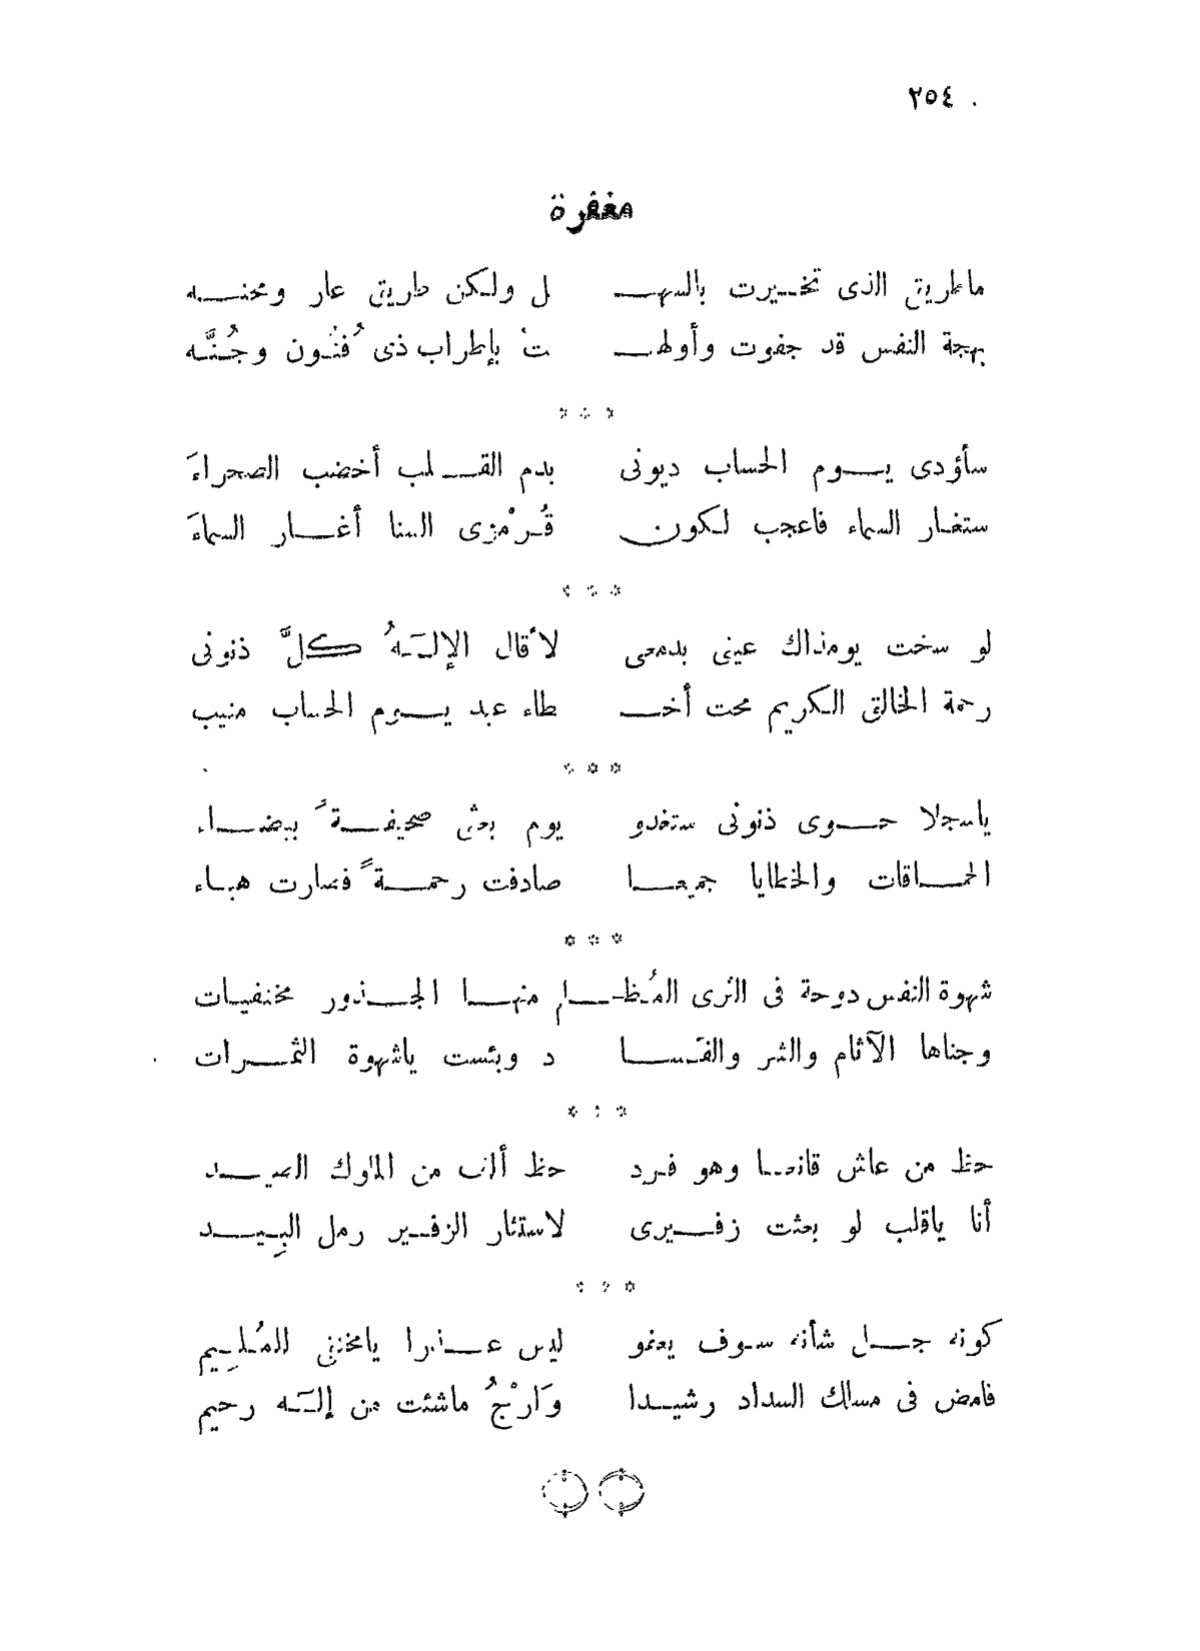 ٢٥٤
مغفرة
ماطريق الذى تخـيرت بالسهـ ل ولكن طريق عار ومحنـه
بهجة النفس قد جفوت وأولهـ ت بإطراب ذى فُنُون وجُنَّـه
* * *
سأؤدى يـوم الحساب ديونى بدم القـلب أخضب الصحراءَ
ستغار السماء فاعجب لكون قُرْمزى السنا أغـار السماءَ
* * *
لو سخت يومذاك عينى بدمعى لأقال الإلـٰهُ كلَّ ذنوبى
رحمة الخالق الكريم محت أخـ طاء عبد يـوم الحساب منيب
* * *
ياسجلا حـوى ذنوبى ستغدو يوم بعثى صحيفـةً بيضـاء
الحماقات والخطايا جميعـا صادفت رحمـةً فصارت هباء
* * *
شهوة النفس دوحة فى الثرى المُظـلم منهـا الجـذور مختفيات
وجناها الآثام والشر والفسـا د وبئست ياشهوة الثمـرات
* * *
حظ من عاش قانعـا وهو فرد حظ ألف من الملوك الصيـد
أنا ياقلب لو بعثت زفـيرى لاستثار الزفـير رمل البِيـد
* * *
كونه جـل شأنه سوف يعفو ليس عـذرا يامخنثى للمُـلِيم
فامض فى مسالك السداد رشيـدا وَارْجُ ماشئت من إلـٰه رحيم